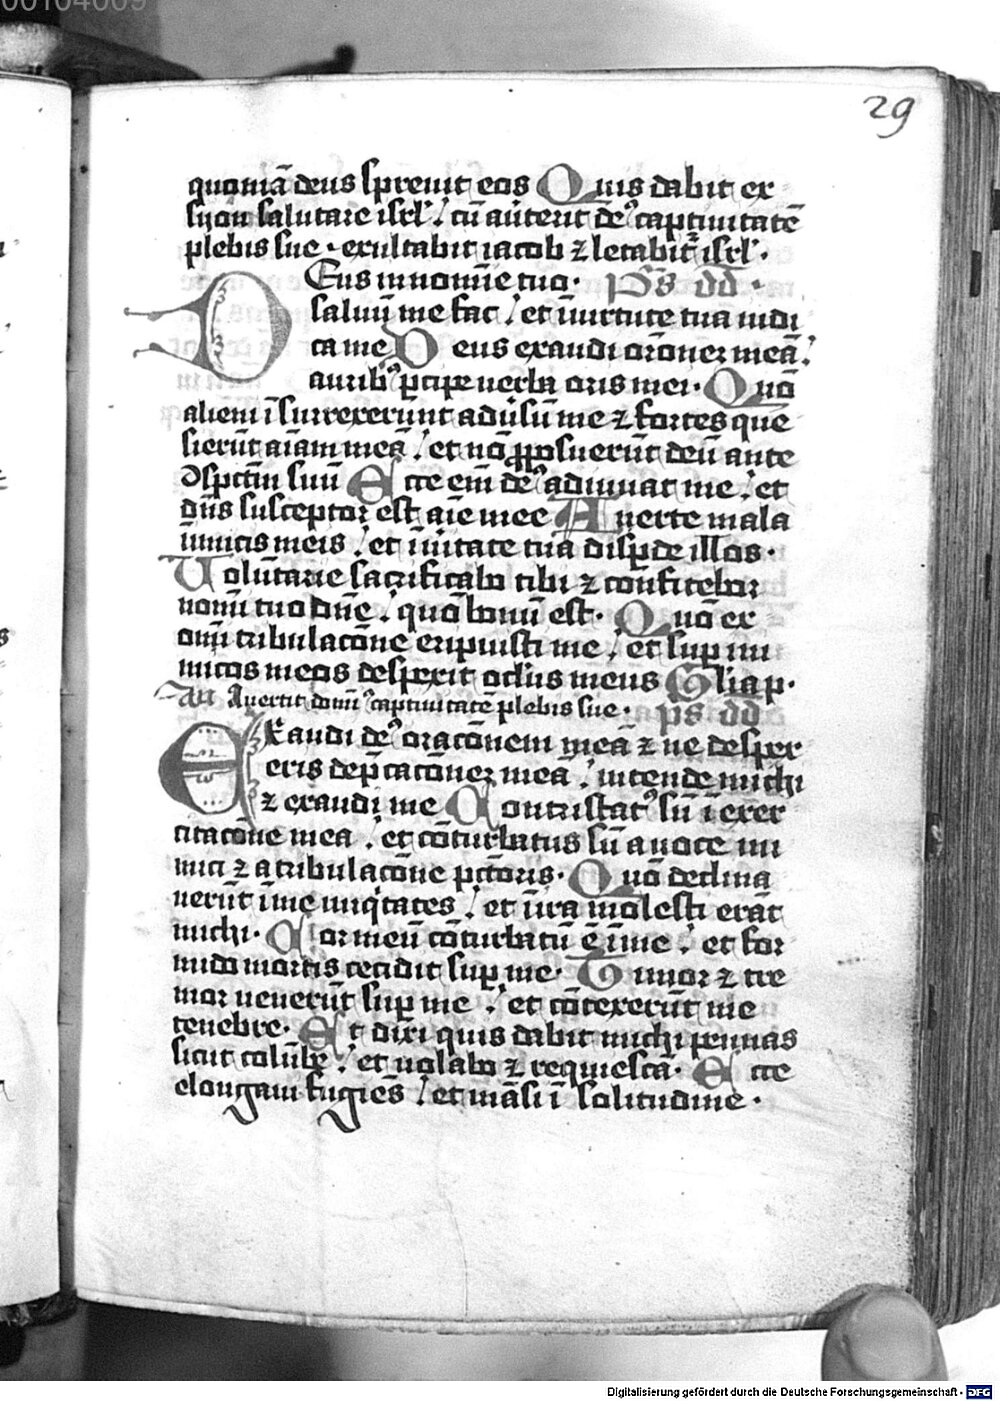 00104009
29
quoniā deus spreuit eos Quis dabit ex
syon salutare isrl'. cū auterit de⁹ captiuitatē
plebis sue · exultabit iacob ⁊ letabit᷑ isrl'.
Deus in nomīe tuo. Ps dd.
saluū me fac / et ī uirtute tua iudi
ca me Deus exaudi orōnez meā /
aurib⁹ ꝑcipe uerba oris mei. Quō
alieni īsurrexerunt adūsū me ⁊ fortes que
sierūt aīam meā / et nō ꝓposuerūt deū ante
ↄspctm̄ suū Ecce em̄ de⁹ adiuuat me / et
dn̄s susceptor est aīe mee Auerte mala
īimicis meis / et ī ūitate tua disꝑde illos.
Voluntarie sacrificabo tibi ⁊ confitebor
nomī tuo dn̄e / quō bonū est. Quō ex
omī tribulacōne eripuisti me / et suꝑ ini
micos meos despexit oclus meus Glia p.
An̄ Auertit domī⁹ captiuitatē plebis sue. ps dd
Exaudi de⁹ oracōnem meā ⁊ ne desper
eris dep̄cacōnez meā / intende michi
⁊ exaudi me Contristat⁹ sū ī exer
citacōne mea / et cōturbatus sū a uoce ini
mici ⁊ a tribulacōne pctōris. Quō declina
uerūt ī me iniq̇tates / et ī ira molesti erāt
michi. Cor meū cōturbatū ē ī me / et for
mido mortis cecidit suꝑ me. Timor ⁊ tre
mor uenerūt suꝑ me / et cōtexerūt me
tenebre. Et dixi quis dabit michi pennas
sicut colūbe / et uolabo ⁊ requiescā. Ecce
elongaui fugiēs / et māsi ī solitudine.
Digitalisierung gefördert durch die Deutsche Forschungsgemeinschaft - DFG